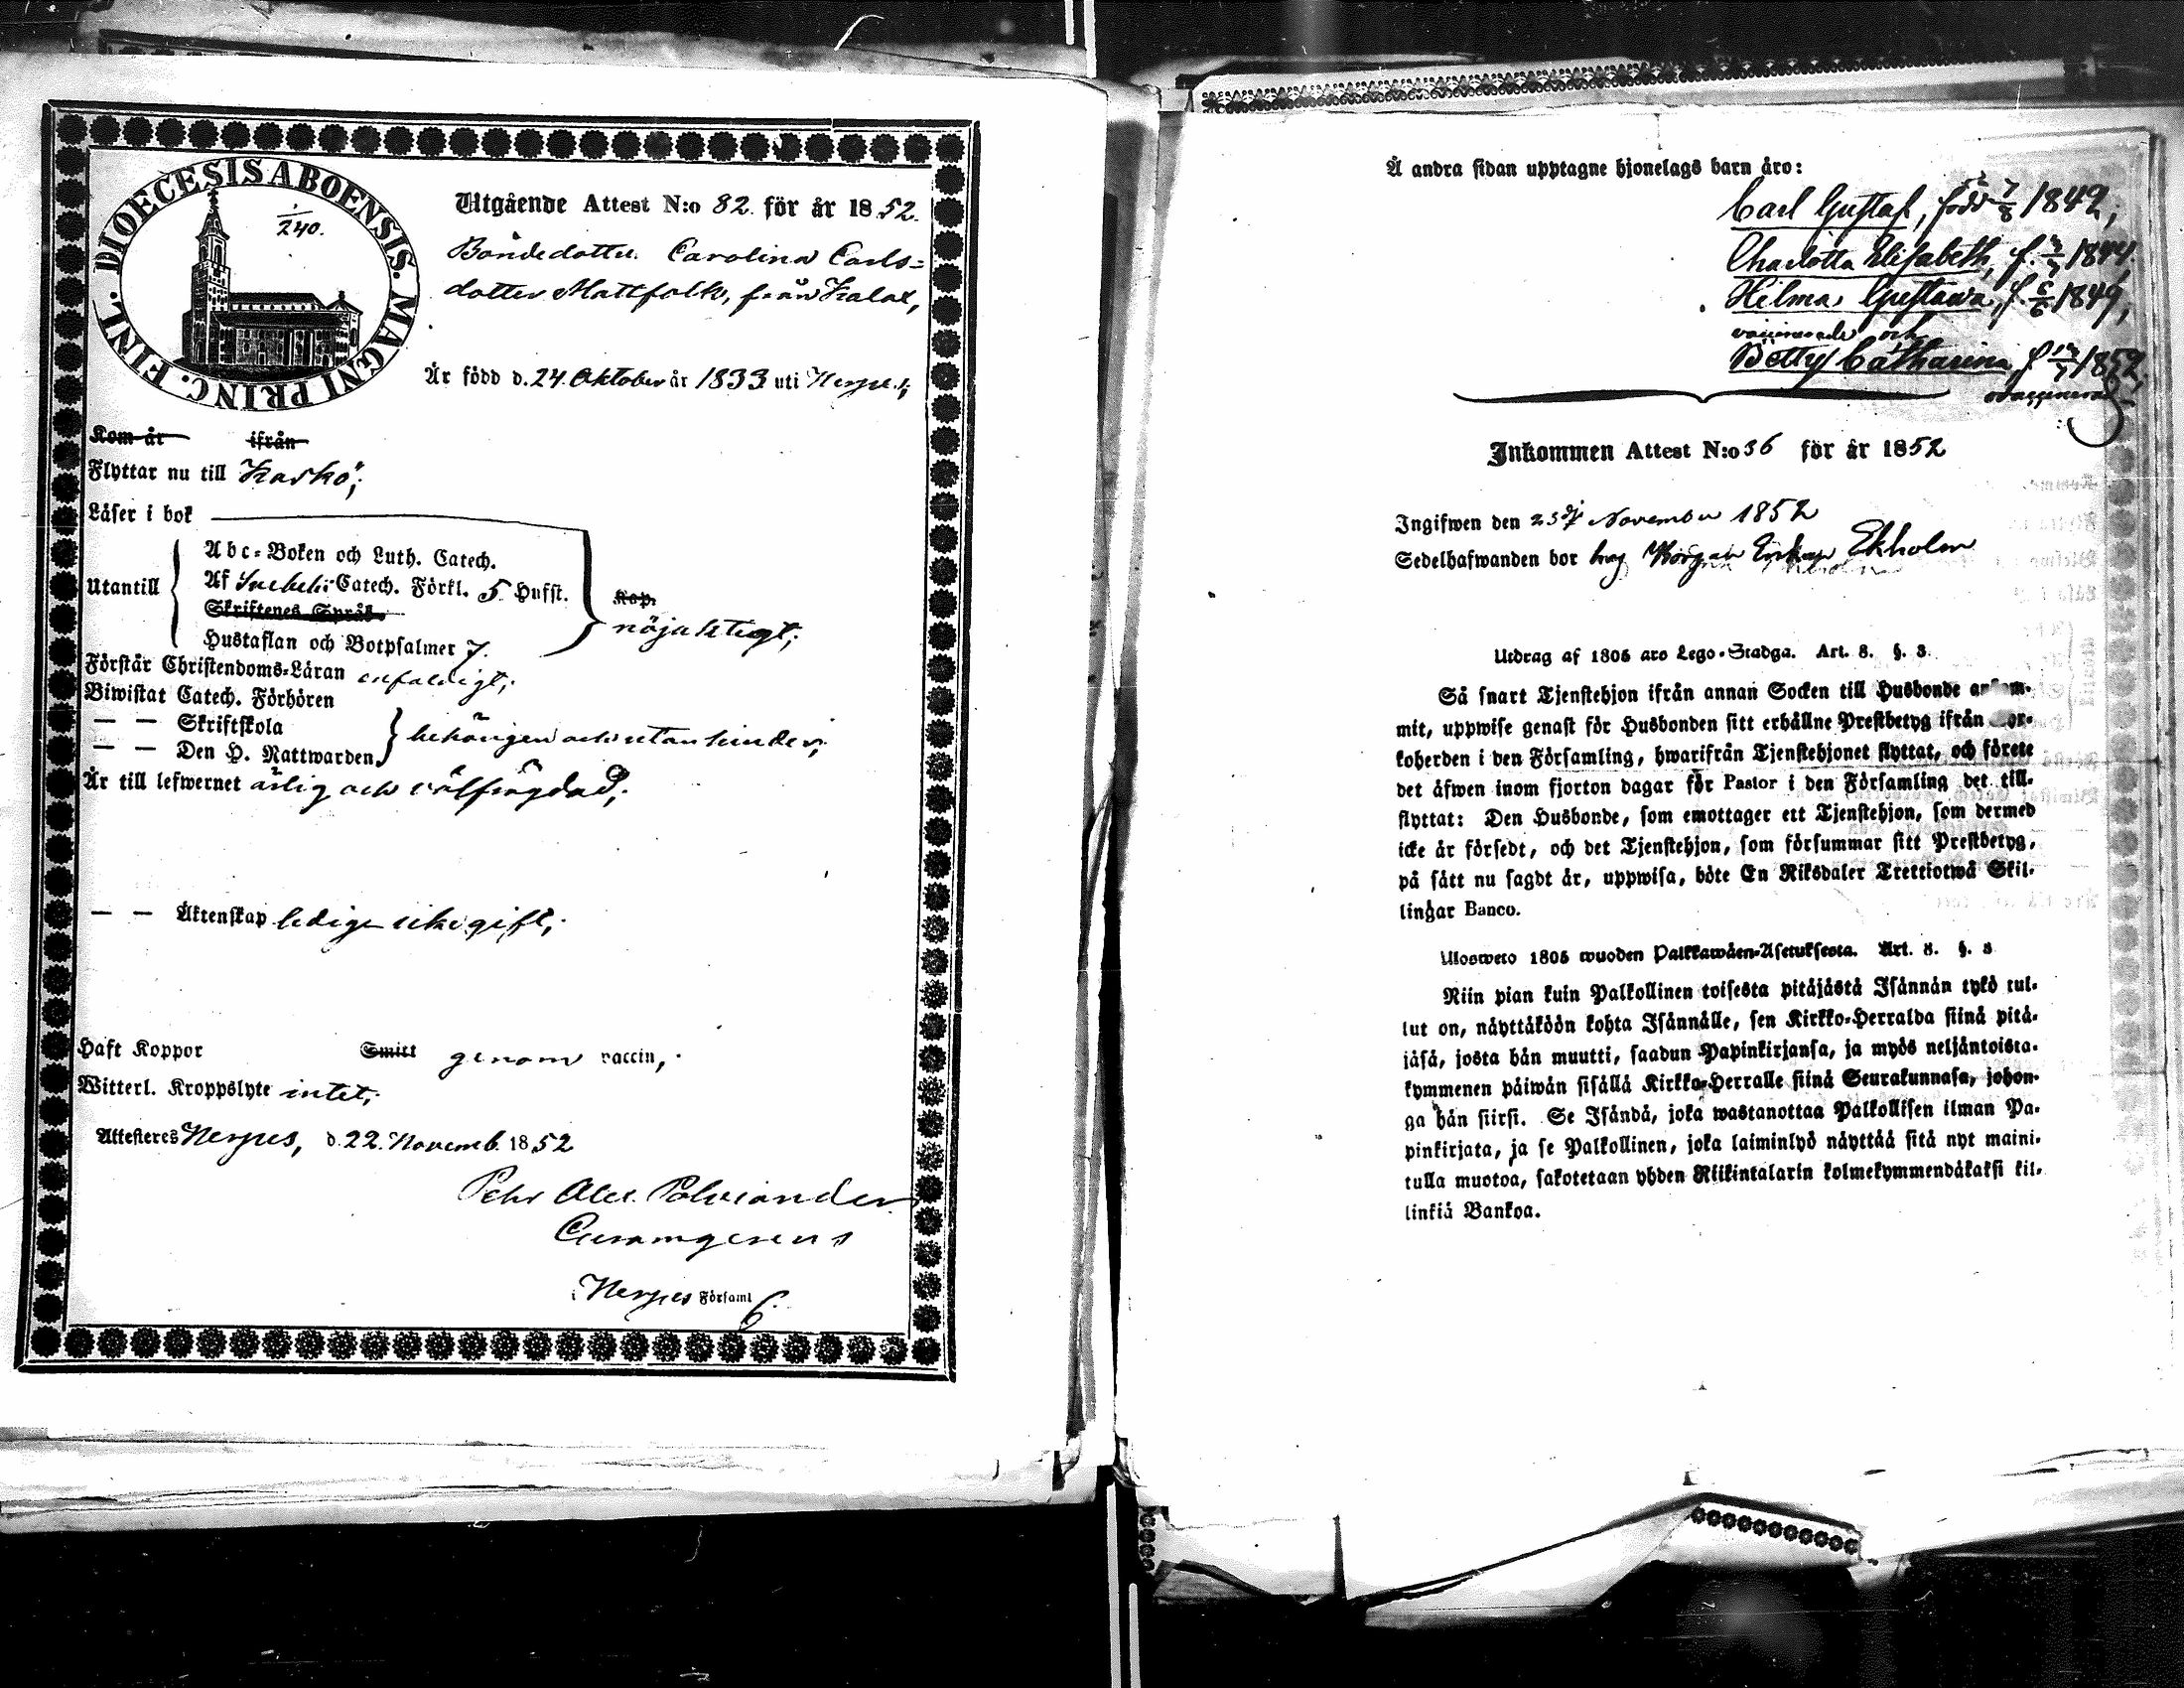 DIOECESIS ABOENSIS. MAGNI PRINC. FINL.
1/240.
Utgående Attest N:o 82. för år 1852.
Bondedotter Carolina Carls=
dotter Mattfolk, från Kalax,
Är född d. 24 Oktober år 1833 uti Nerpes;
Kom år ifrån
Flyttar nu till Kaskö;
Läser i bok
Abc-Boken och Luth. Catech.
Utantill Af Svebeli Catech. Förkl. 5 Hufst. Kap.
Skriftenes Språk. nöjaktigt;
Hustaflan och Botpsalmer 7.
Förstår Christendoms-Läran enfaldigt;
Biwistat Catech. Förhören
— — Skriftskola behörigen och utan hinder;
— — Den H. Nattwarden
Är till lefwernet ärlig och välfrägdad;
— — Äktenskap ledig icke gift;
Haft Koppor Smitt genom vaccin;
Witterl. Kroppslyte intet;
Attesteres Nerpes, d. 22. Novemb. 1852
Pehr Alex. Polviander
Curam gerens
i Nerpes Församl
Å andra sidan upptagne hjonelags barn äro:
Carl Gustaf, född 7/8 1842,
Charlotta Elisabeth, f. 1844,
Hilma Gustava, f. 6/6 1849,
vaccinerade och
Betty Catharina, f. 1852,
ovaccinerad
Inkommen Attest N:o 36 för år 1852
Ingifwen den 25 November 1852
Sedelhafwanden bor hos Ekholm
Utdrag af 1805 års Lego-Stadga. Art. 8. §. 3.
Så snart Tjenstehjon ifrån annan Socken till Husbonde ankom-
mit, uppwise genast för Husbonden sitt erhållne Prestbetyg ifrån Kyr-
koherden i den Församling, hwarifrån Tjenstehjonet flyttat, och förete
det äfwen inom fjorton dagar för Pastor i den Församling det till-
flyttat: Den Husbonde, som emottager ett Tjenstehjon, som dermed
icke är försedt, och det Tjenstehjon, som försummar sitt Prestbetyg,
på sätt nu sagdt är, uppwisa, böte En Riksdaler Trettiotwå Skil-
lingar Banco.
Uloswero 1805 wuoden Palkkawäen-Asetuksesta. Art. 8. §. 3
Niin pian kuin Palkollinen toisesta pitäjästä Isännän tykö tul-
lut on, näyttäköön kohta Isännälle, sen Kirkko-Herralda siinä pitä-
jäsä, josta hän muutti, saadun Papinkirjansa, ja myös neljäntoista-
kymmenen päiwän sisällä Kirkko-Herralle siinä Seurakunnasa, johon-
ga hän siirsi. Se Isändä, joka wastanottaa Palkollisen ilman Pa-
pinkirjata, ja se Palkollinen, joka laiminlyö näyttää sitä nyt maini-
tulla muotoa, sakotetaan yhden Riikintalarin kolmekymmendäkaksi kil-
linkiä Bankoa.